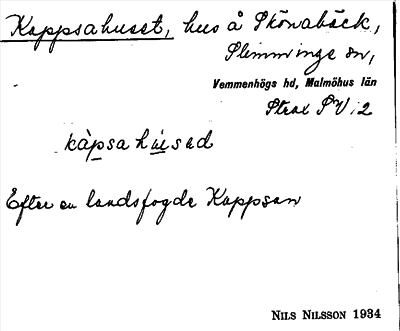 Kappsahuset, hus å Skönabäck,
Slimminge sn,
Vemmenhögs hd, Malmöhus län
Strax SV i 2
kàpsa hùsəd
Efter en landsfogde Kappson
Nils Nilsson 1934